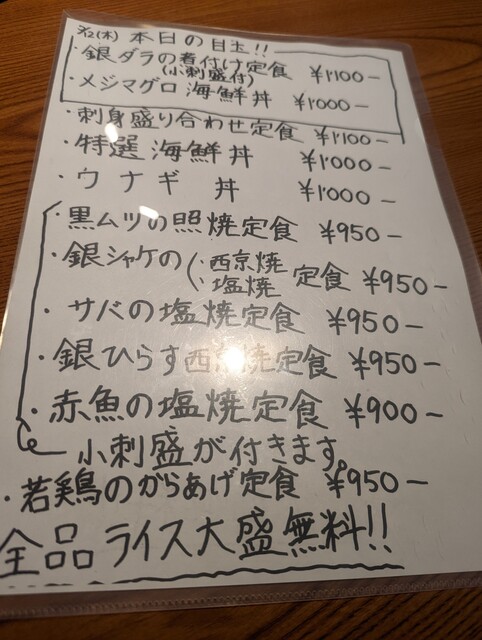 3/12(木) 本日の目玉!!
・銀ダラの煮付け定食 ¥1100-
(小刺盛付)
・メジマグロ 海鮮丼 ¥1000-
・刺身盛り合わせ定食 ¥1100-
・特選 海鮮丼 ¥1000-
・ウナギ 丼 ¥1000-
・黒ムツの照焼定食 ¥950-
・銀シャケの(西京焼 塩焼 定食 ¥950-
・サバの塩焼定食 ¥950-
・銀ひらす西京焼定食 ¥950-
・赤魚の塩焼定食 ¥900-
小刺盛が付きます。
・若鶏のからあげ定食 ¥950-
全品ライス大盛無料!!